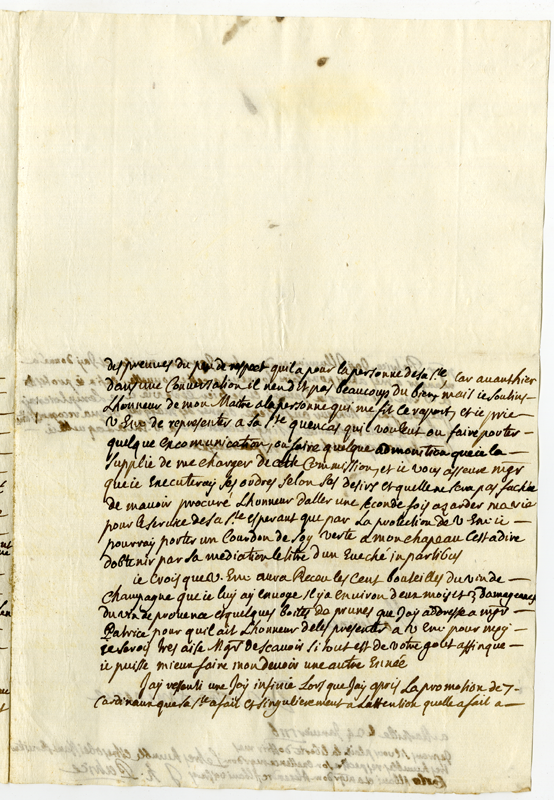 des preuves du peu de respect quil a pour la personne de sa Ste, Car auant hier
dans une Conversation il nen dit pas beaucoup du bien, mais ie soutins
Lhonneur de mon Maitre a la personne qui me fit ce raport, et ie prie
V Eme de representer a sa Ste quencas quil voulut ou faire porter
quelque excomunication, ou faire quelque admonition que ie la
supplie de me charger de cette Commission, et ie vous asseure mgr
que ie Executeray ses ordres selon ses desirs et quelle ne sera pas fachée
de mauoir procuré Lhonneur daller une seconde fois azarder ma vie
pour le seruice de sa Ste esperant que par La protection de V Eme ie
pourray porter un Courdon de soy verte a mon chapeau Cest adire
dobtenir par sa mediation le titre dun Eueché in partibus
ie Crois que V. Eme aura Receu les Cent bouteilles du vin de
Champagne que ie luy ay enuoyé il y a enuiron deux mois et
du vin de prouence et quelques boites de prunes que Jay addressé a mgr
Patrice pour quil ait Lhonneur de les presenter a V Eme pour moy
ie serois tres aise Mgr de scauoir si tout est de votre gout affinque
ie puisse mieux faire mon deuoir une autre Année
Jay resenti une Joy infinie Lors que Jay apris La promotion de 7
Cardinaux que sa Ste a fait et singulierement a Lattention quelle a fait a